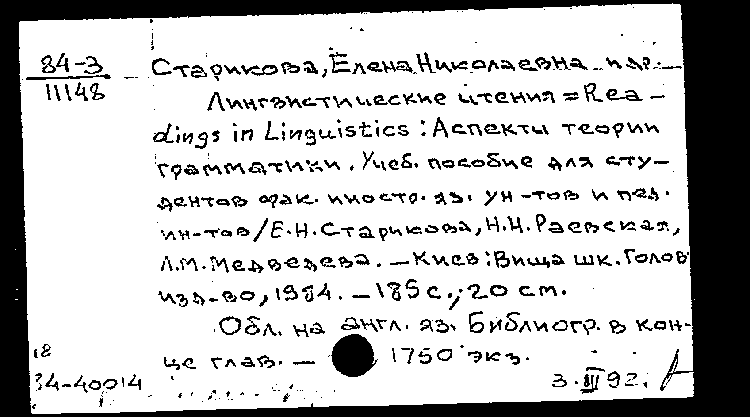 84-3
11148
Старикова, Елена Николаевна и др.
Лингвистические чтения = Rea-
dings in Linguistics : Аспекты теории
грамматики. Учеб. пособие для сту-
дентов фак. иностр. яз. ун-тов и пед.
ин-тов / Е.Н. Старикова, Н.Н. Раевская,
Л.М. Медведева. – Киев : Вища шк. Голов
изд-во, 1984. – 185 с.; 20 см.
Обл. на англ. яз. Библиогр. в кон-
це глав. – 1750 экз.
18
84-40014
3. III 92.